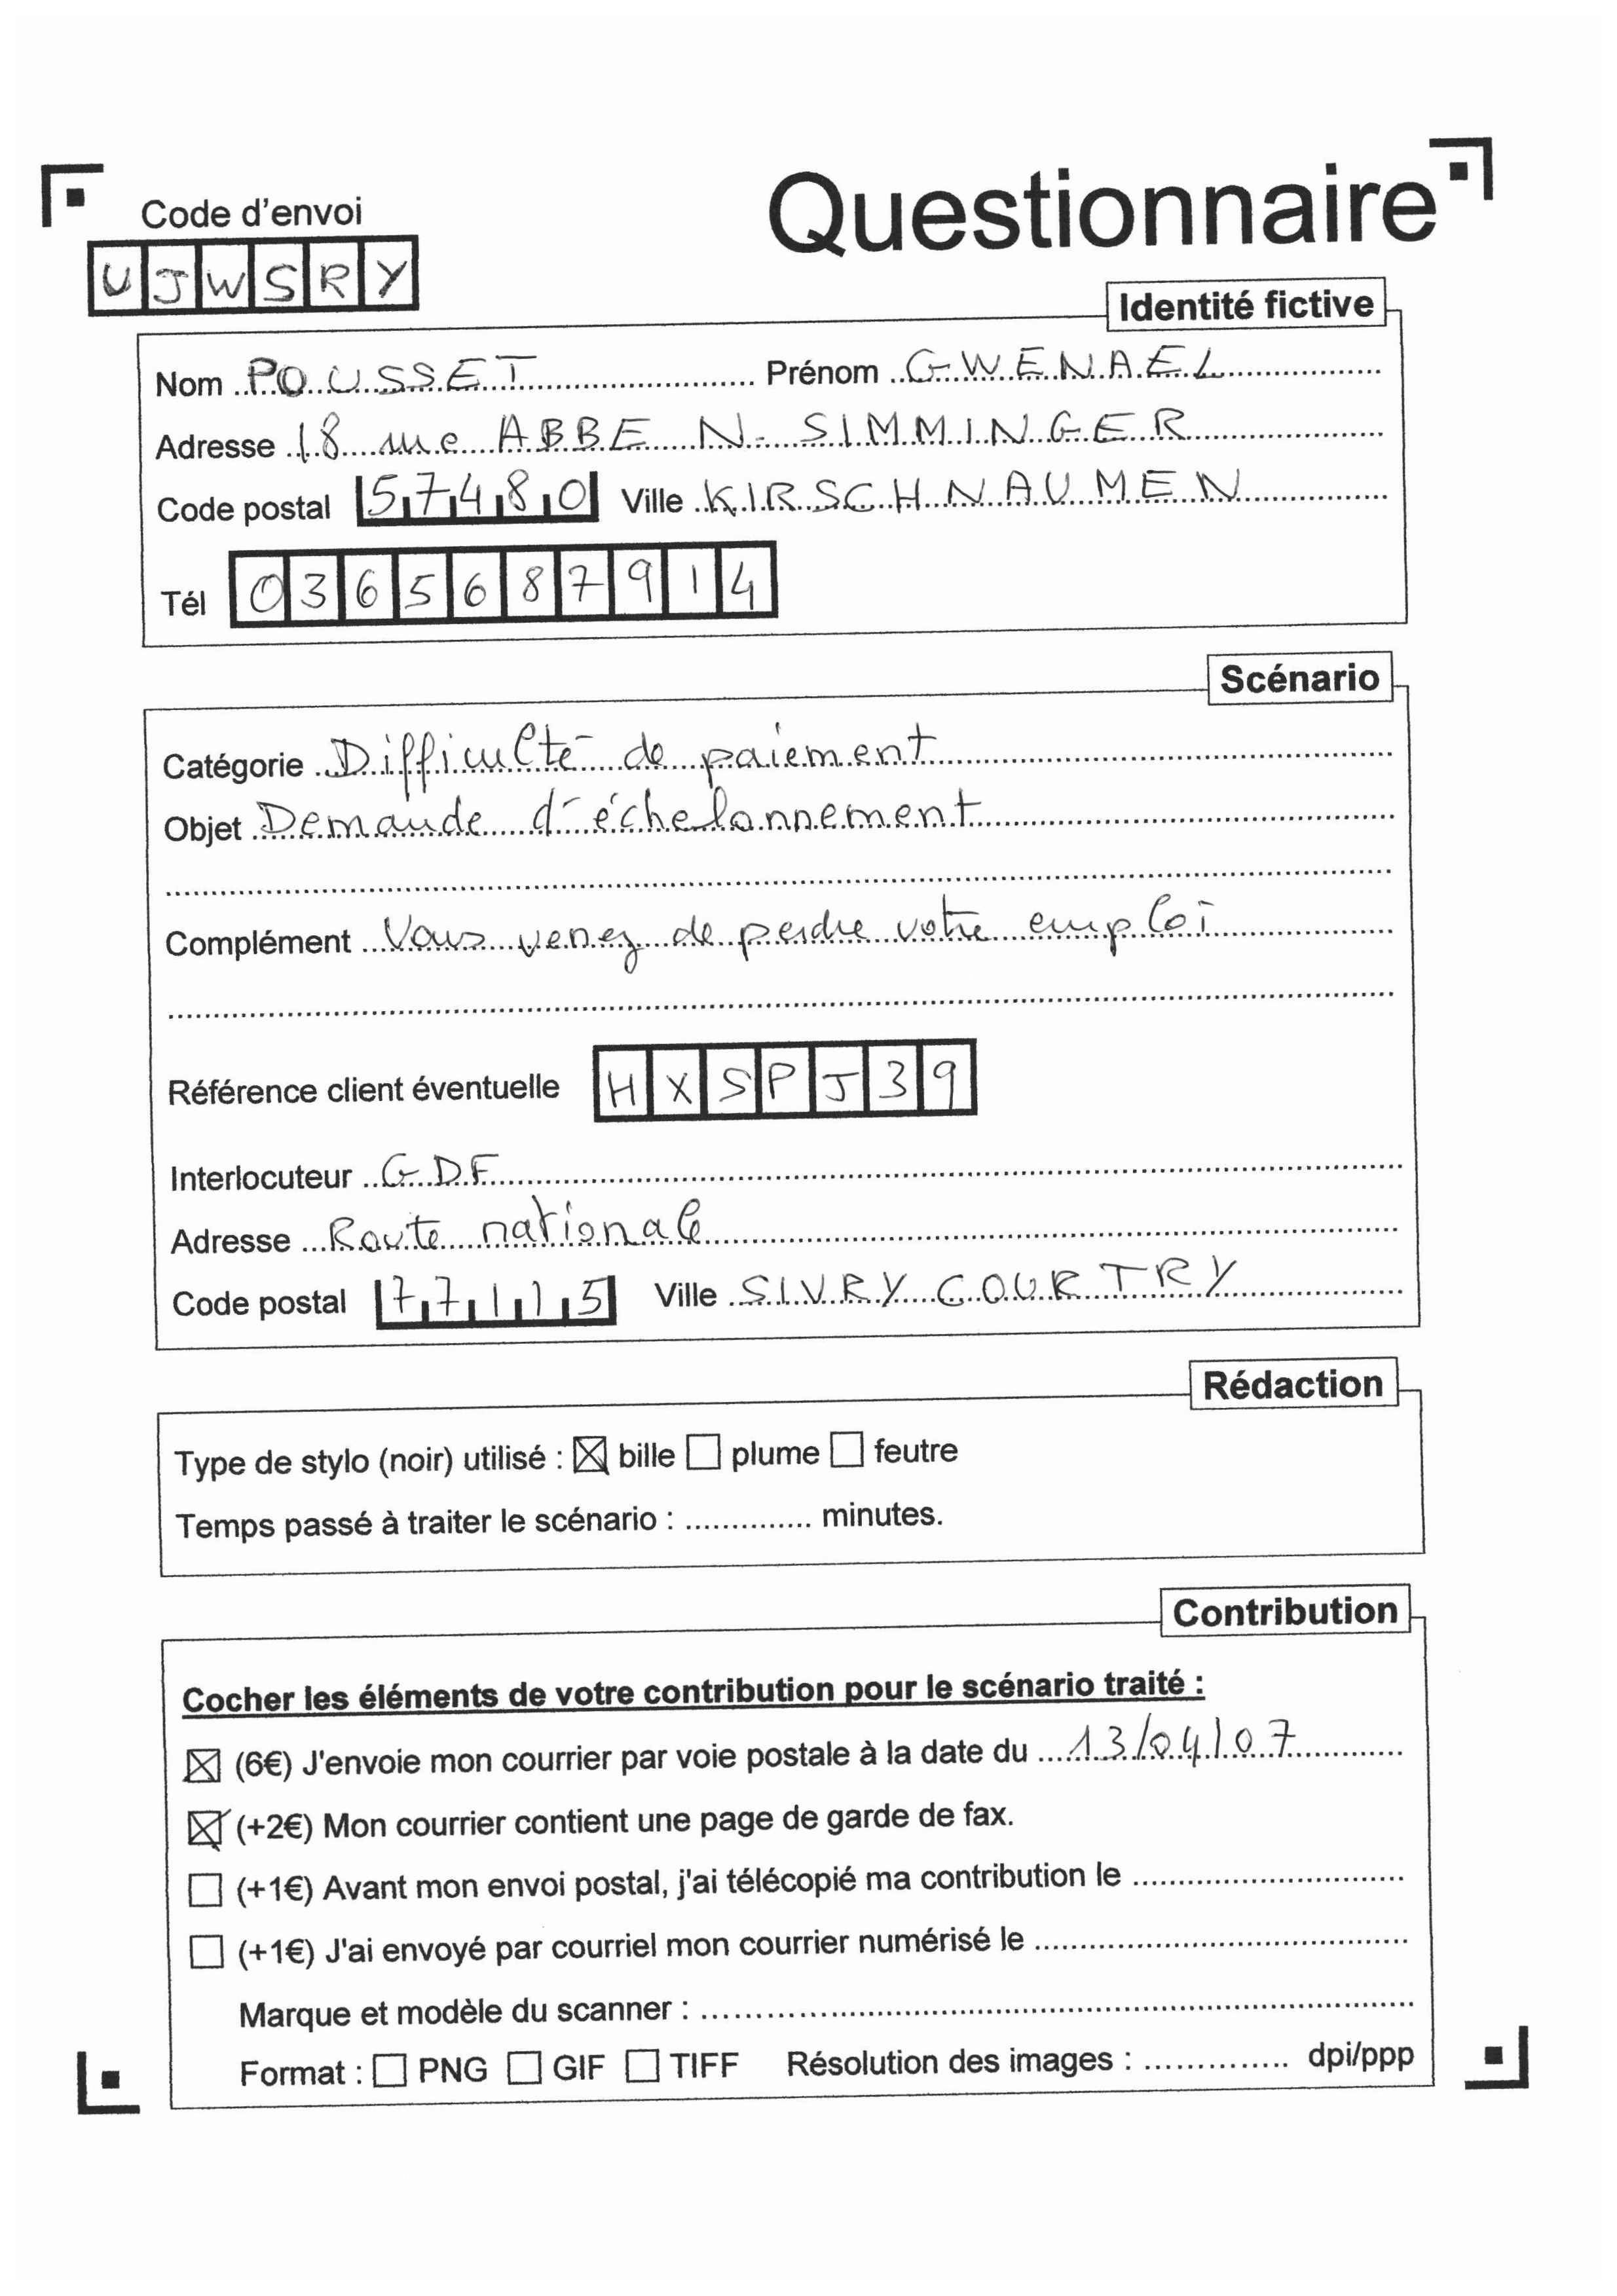 Questionnaire
Code d'envoi
UJWSRY
Identité fictive
Nom POUSSET Prénom GWENAEL
Adresse 18 rue ABBE N. SIMMINGER
Code postal 57480 Ville KIRSCHNAUMEN
Tél 0365687914
Scénario
Catégorie Difficulté de paiement
Objet Demande d'échelonnement
Complément Vous venez de perdre votre emploi
Référence client éventuelle HXSPJ39
Interlocuteur GDF
Adresse Route nationale
Code postal 77115 Ville SIVRY COURTRY
Rédaction
Type de stylo (noir) utilisé : ☒ bille ☐ plume ☐ feutre
Temps passé à traiter le scénario : .............. minutes.
Contribution
Cocher les éléments de votre contribution pour le scénario traité :
☒ (6€) J'envoie mon courrier par voie postale à la date du 13/04/07
☒ (+2€) Mon courrier contient une page de garde de fax.
☐ (+1€) Avant mon envoi postal, j'ai télécopié ma contribution le ..............
☐ (+1€) J'ai envoyé par courriel mon courrier numérisé le ..............
Marque et modèle du scanner : ..............
Format : ☐ PNG ☐ GIF ☐ TIFF Résolution des images : .............. dpi/ppp